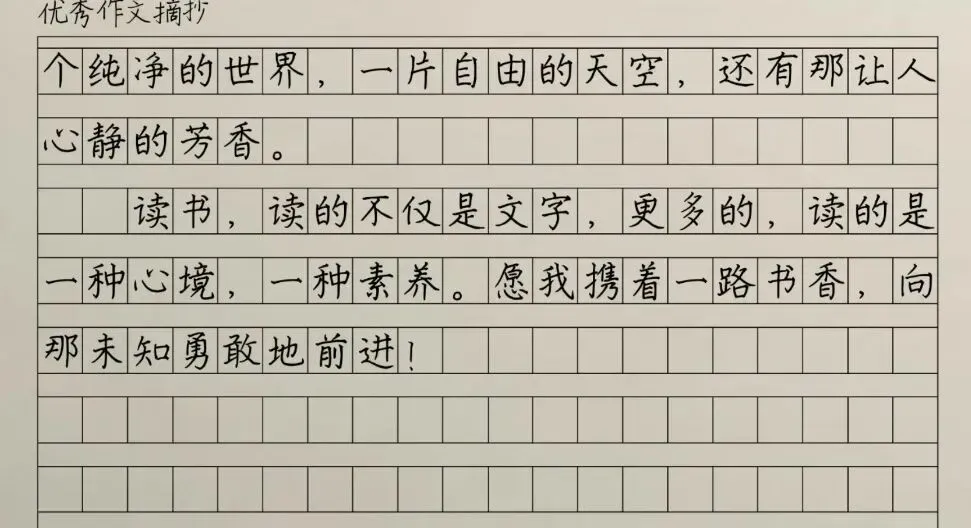 优秀作文摘抄
个纯净的世界，一片自由的天空，还有那让人
心静的芳香。
读书，读的不仅是文字，更多的，读的是
一种心境，一种素养。愿我携着一路书香，向
那未知勇敢地前进！